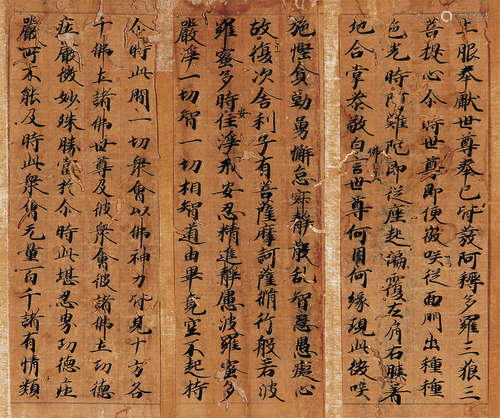 上服奉獻世尊奉已皆發阿耨多羅三狼三
菩提心尒時世尊即便微咲從面門出種種
色光時阿難陀即從座起偏覆左肩右膝著
地合掌恭敬白佛言世尊何因何緣現此微咲
施慳貪勤勇懈怠寂靜散乱智慧愚癡心
故復次舍利子有菩薩摩訶薩脩行般若波
羅蜜多時住淨戒安忍精進靜慮波羅蜜多
嚴淨一切智一切相智道由畢竟空不起持
尒時此間一切衆會以佛神力皆見十方各
千佛土諸佛世尊及彼衆會彼諸佛土功德
莊嚴微妙殊勝當於尒時此堪忍界功德莊
嚴所不能及時此衆會无量百千諸有情類